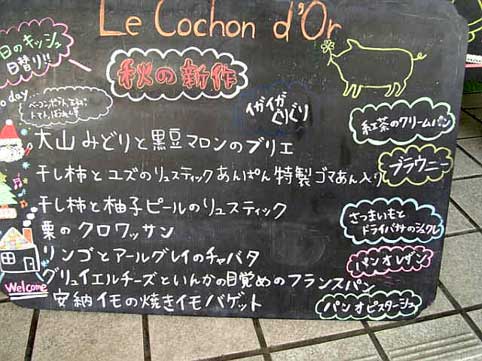 Le Cochon d'Or
日のキッシュ
日替り!!
秋の新作
イガイガ
ぐりぐり
紅茶のクリームパン
大山みどりと黒豆マロンのブリエ
ブラウニー
干し柿とユズのリュスティックあんぱん 特製ゴマあん入り
干し柿と柚子ピールのリュスティック
さつまいもと
栗のクロワッサン
リンゴとアールグレイのチャバタ
パンオレザン
グリュイエルチーズといんかの目覚めのフランスパン
Welcome
安納イモの焼きイモバゲット
パンオピスターシュ